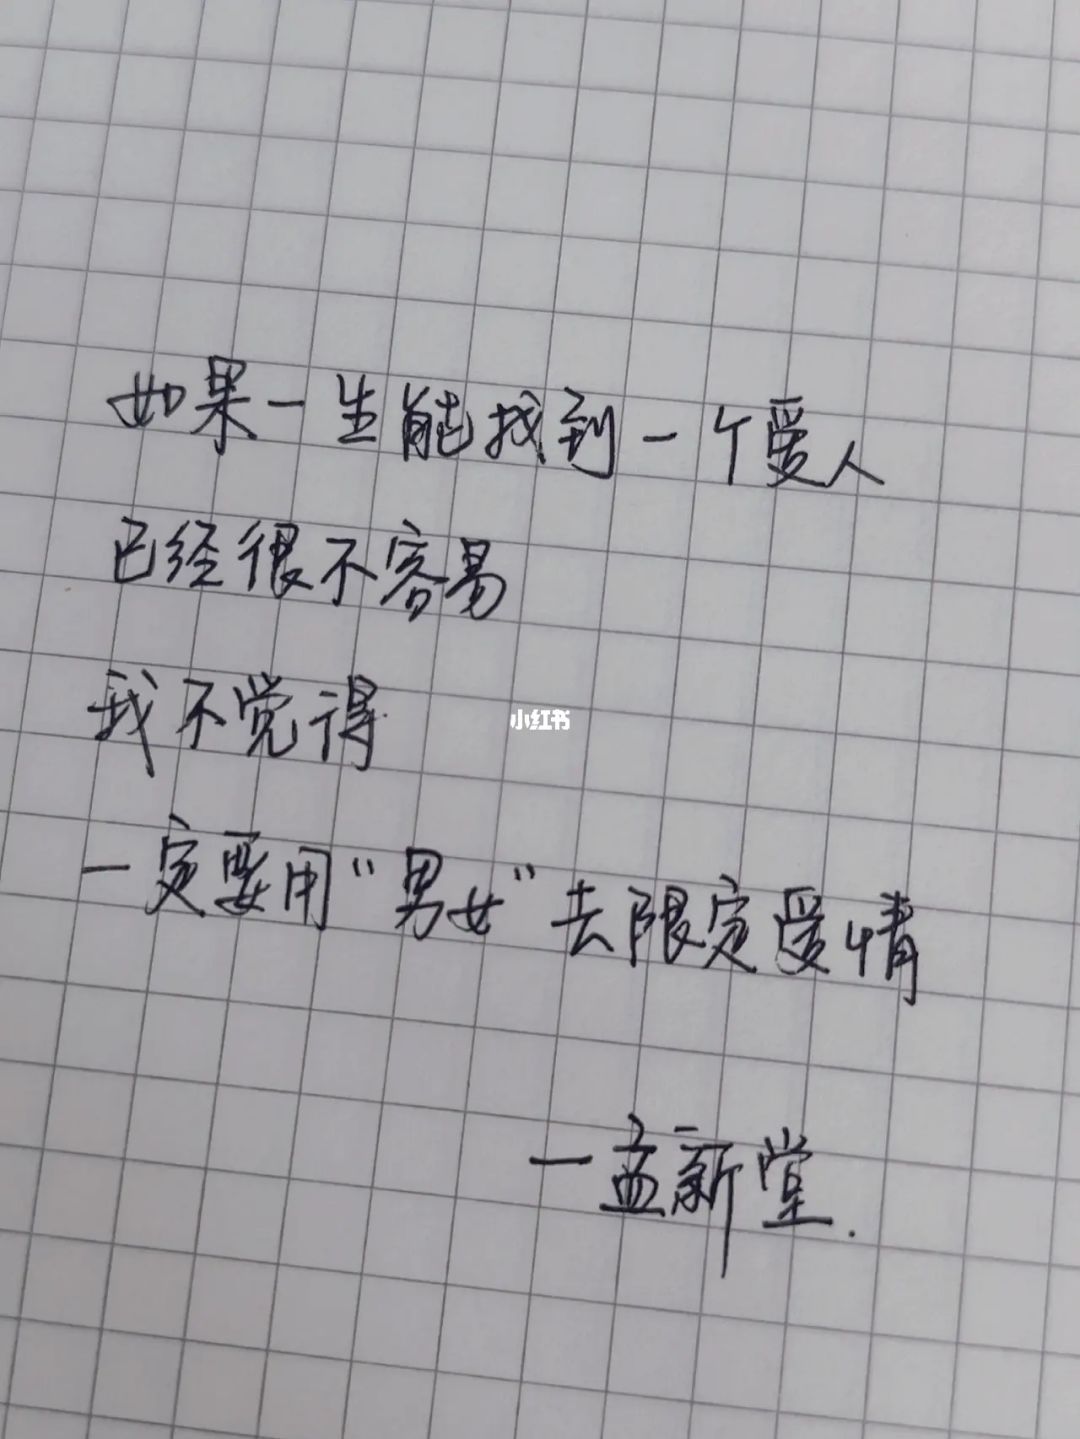 如果一生能找到一个爱人
已经很不容易
我不觉得
小红书
一定要用“男女”去限定爱情
—孟新堂.